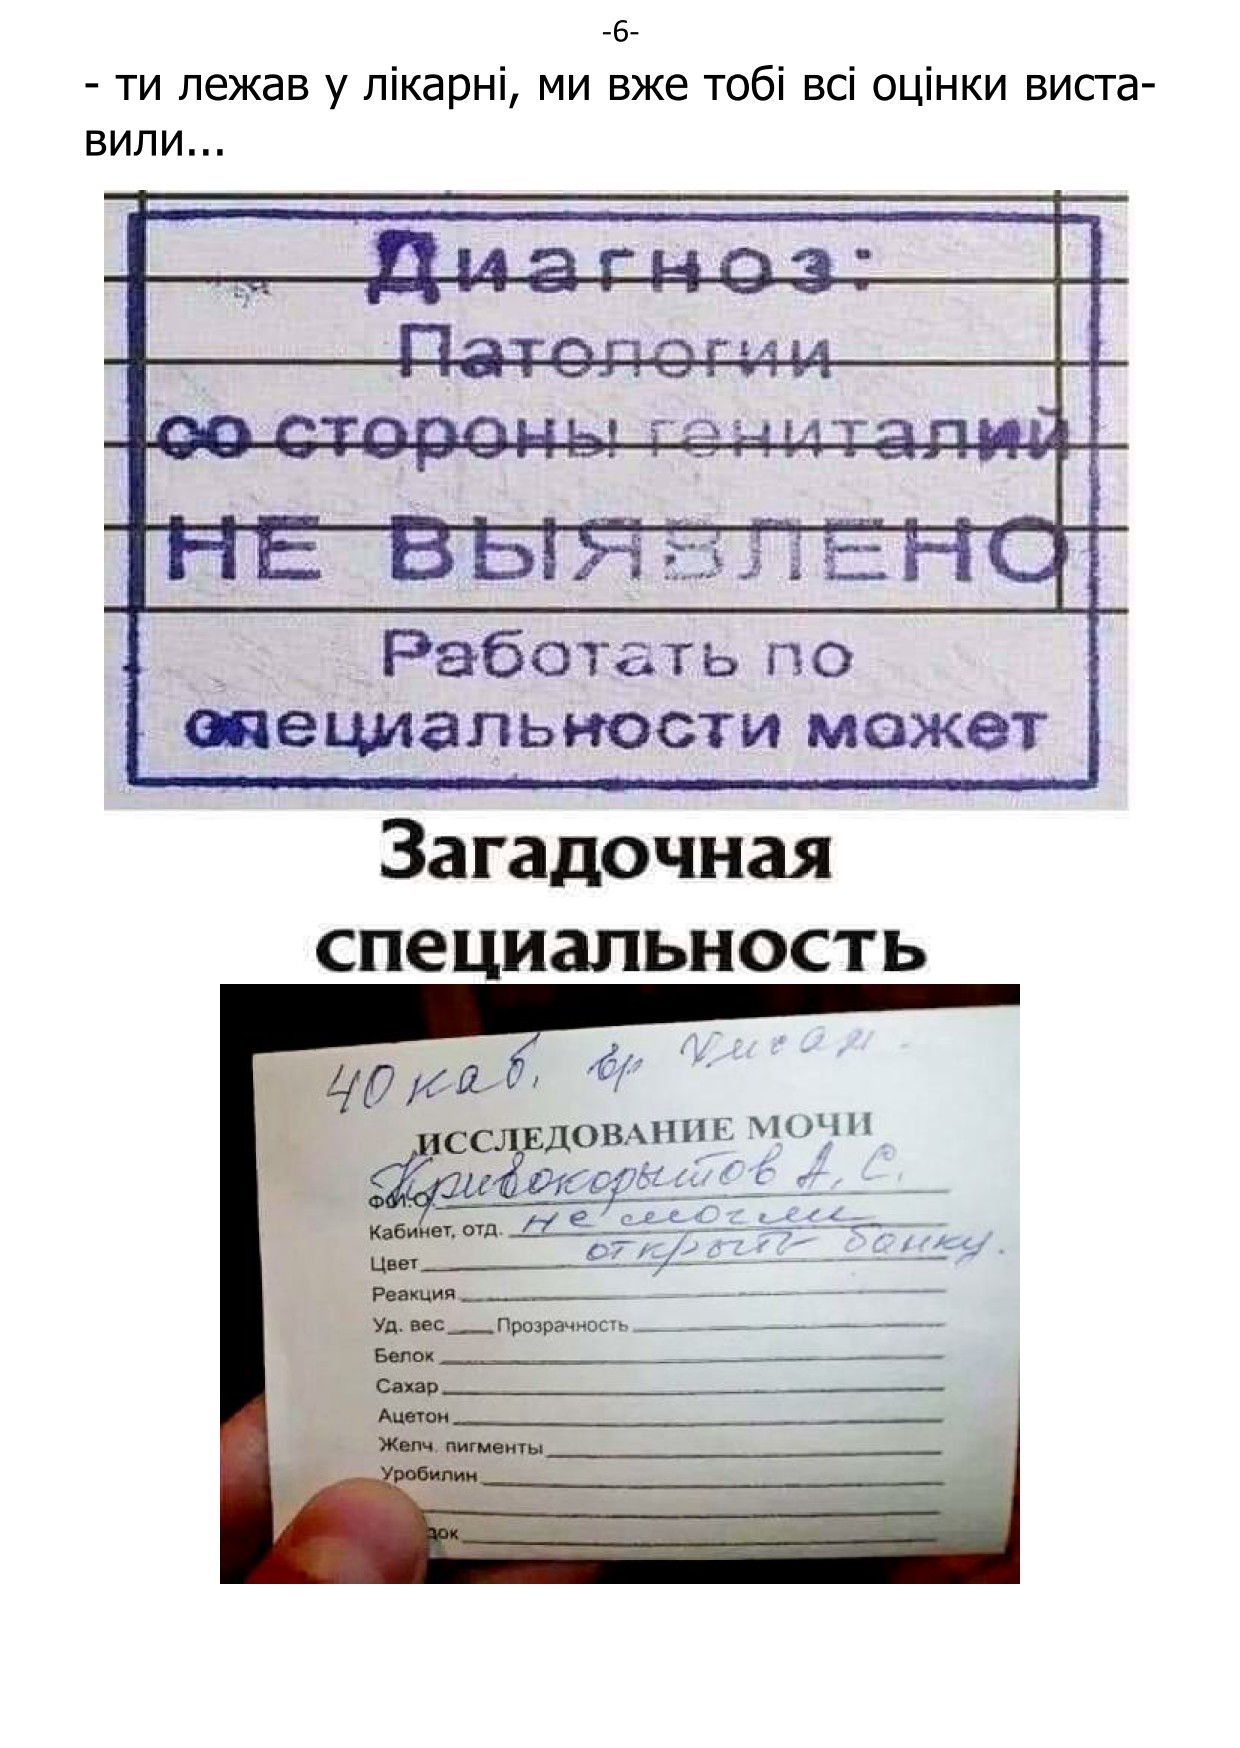 -6-
- ти лежав у лікарні, ми вже тобі всі оцінки виста-
вили...
Диагноз:
Патологии
со стороны гениталий
НЕ ВЫЯВЛЕНО
Работать по
специальности может
Загадочная
специальность
40 каб. вр
ИССЛЕДОВАНИЕ МОЧИ
Ф.И.О. Кривокорытов А. С.
Кабинет, отд. не смогли
открыть банку.
Цвет
Реакция
Уд. вес Прозрачность
Белок
Сахар
Ацетон
Желч. пигменты
Уробилин
док